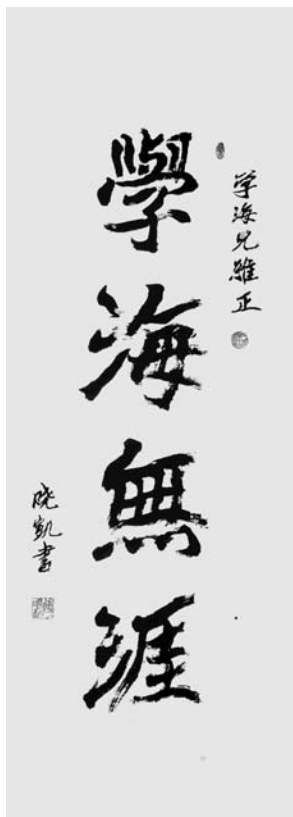 学海兄雅正
學海無涯
晓凱書